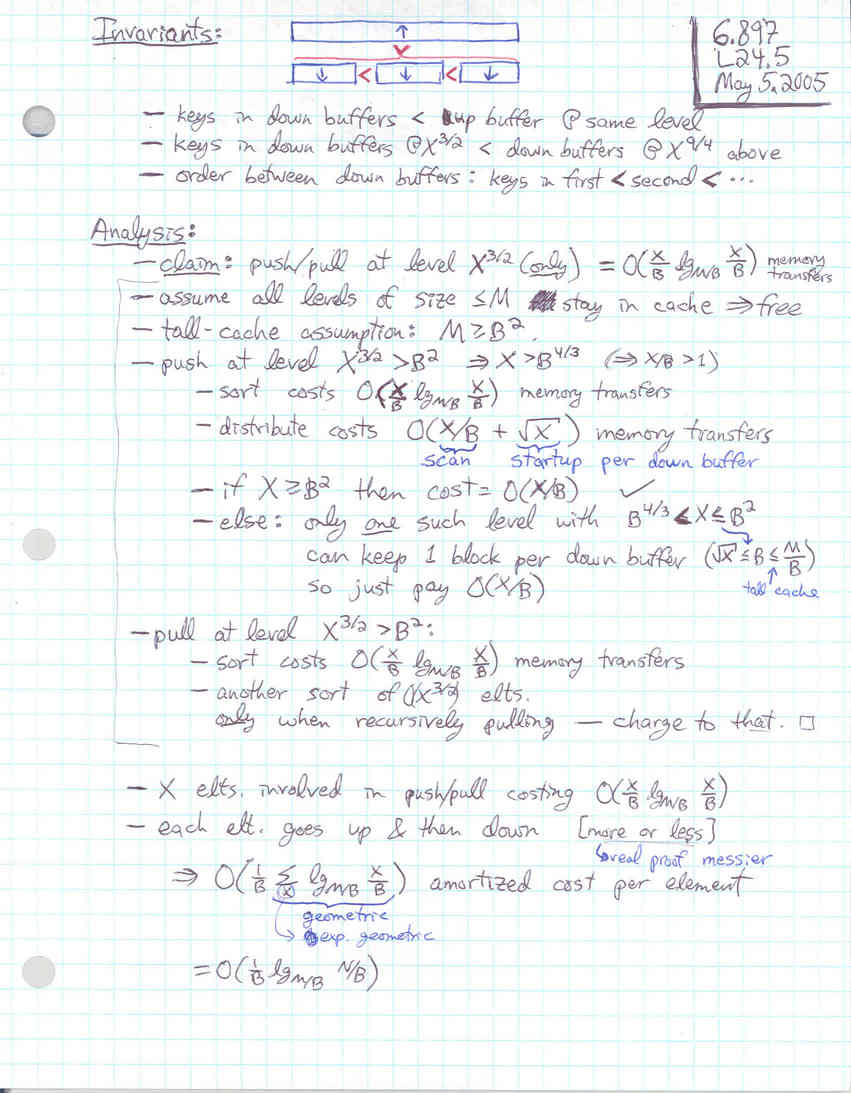 Invariants:
6.897
L24.5
May 5, 2005
↑
↓ < ↓ < ↓
— keys in down buffers < up buffer @ same level
— keys in down buffers @ X^{3/2} < down buffers @ X^{9/4} above
— order between down buffers: keys in first < second < ···
Analysis:
— claim: push/pull at level X^{3/2} (only) = O(X/B lg_{M/B} X/B) memory transfers
— assume all levels of size ≤ M stay in cache ⇒ free
— tall-cache assumption: M ≥ B².
— push at level X^{3/2} > B² ⇒ X > B^{4/3} (⇒ X/B > 1)
— sort costs O(X/B lg_{M/B} X/B) memory transfers
— distribute costs O(X/B + √X) memory transfers
scan startup per down buffer
— if X ≥ B² then cost = O(X/B) ✓
— else: only one such level with B^{4/3} < X ≤ B²
can keep 1 block per down buffer (√X ≤ B ≤ M/B)
so just pay O(X/B)
tall cache
— pull at level X^{3/2} > B²:
— sort costs O(X/B lg_{M/B} X/B) memory transfers
— another sort of (X^{3/2}) elts.
only when recursively pulling — charge to that. □
— X elts. involved in push/pull costing O(X/B lg_{M/B} X/B)
— each elt. goes up & then down [more or less]
↳ real proof messier
⇒ O(1/B Σ_X lg_{M/B} X/B) amortized cost per element
geometric
→ exp. geometric
= O(1/B lg_{M/B} N/B)